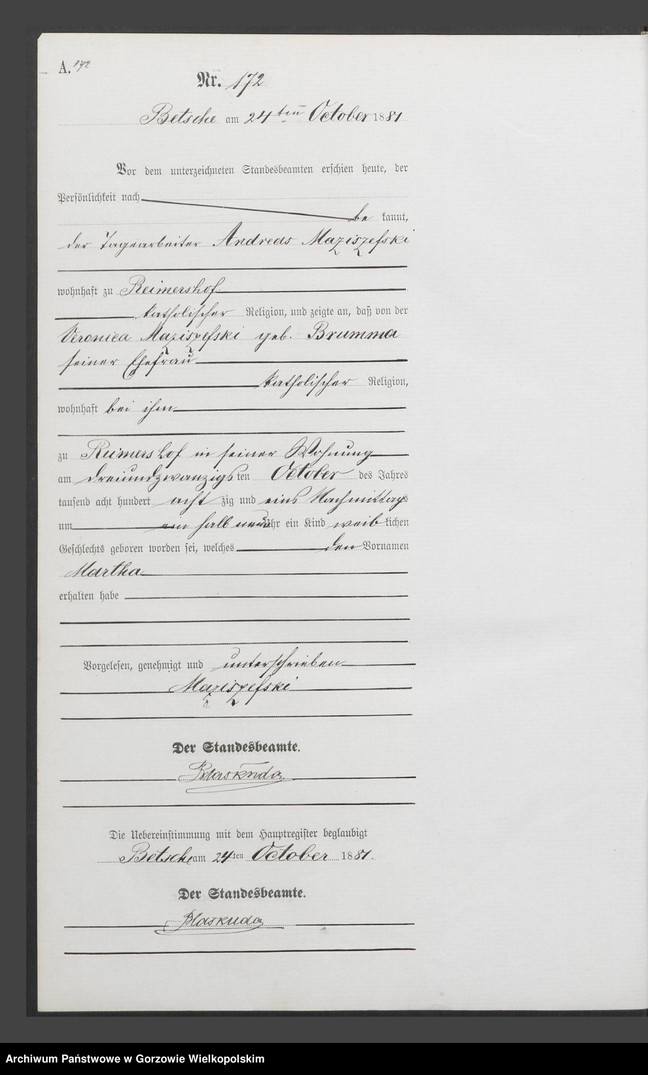 A. 172
Nr. 172
Betsche am 24ten October 1881
Vor dem unterzeichneten Standesbeamten erschien heute, der
Persönlichkeit nach
be kannt,
der Tagearbeiter Andreas Maziszefski
wohnhaft zu Reimershof
katholischer Religion, und zeigte an, daß von der
Veronica Maziszefski geb. Brumma
seiner Ehefrau
katholischer Religion,
wohnhaft bei ihm
zu Reimershof in seiner Wohnung
am dreiundzwanzigsten October des Jahres
tausend acht hundert acht zig und eins Nachmittags
um ein halb neun Uhr ein Kind weib lichen
Geschlechts geboren worden sei, welches den Vornamen
Martha
erhalten habe
Vorgelesen, genehmigt und unterschrieben
Maziszefski
Der Standesbeamte.
Blaskuda
Die Uebereinstimmung mit dem Hauptregister beglaubigt
Betsche am 24ten October 1881.
Der Standesbeamte.
Blaskuda
Archiwum Państwowe w Gorzowie Wielkopolskim